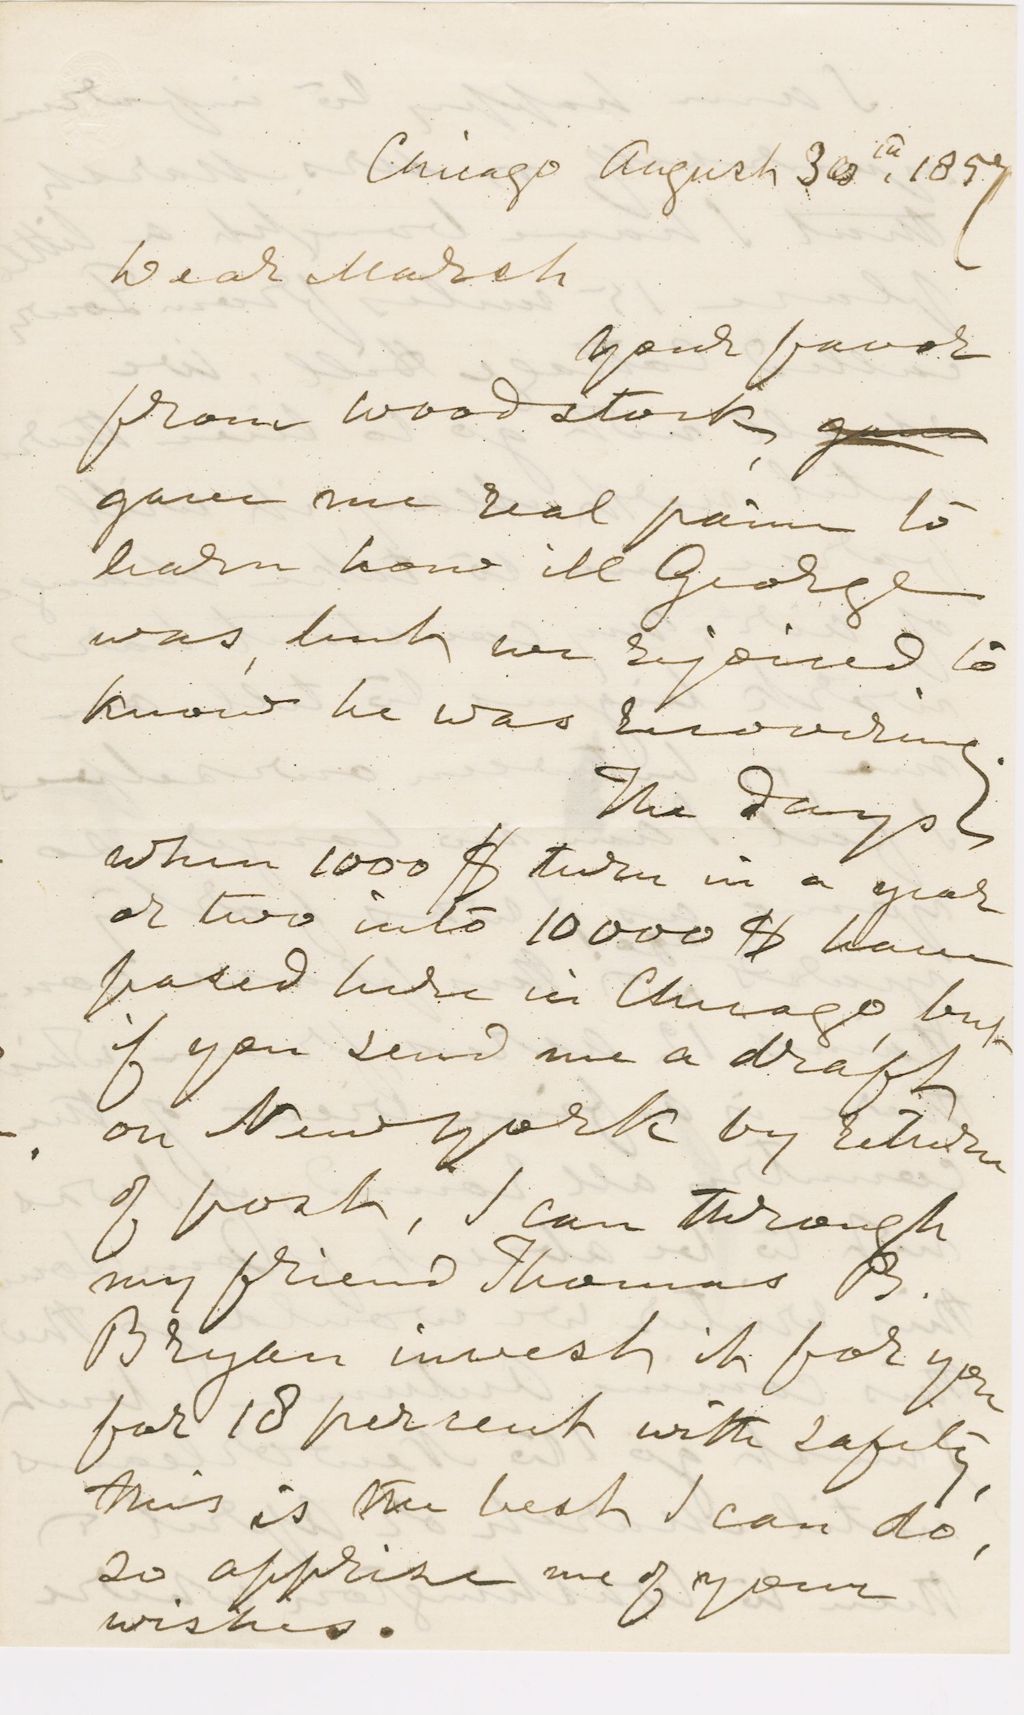 Chicago August 30th, 1857
Dear Marsh
your favor
from Woodstock, gave
gave me real paine to
learn how ill George
was, but we rejoiced to
know he was recovering.
The days
when 1000 $ turn in a year
or two into 10000 $ have
passed here in Chicago, but
if you send me a draft
on New York by return
of post, I can through
my friend Thomas B.
Bryan invest it for you
for 18 percent with safety,
this is the best I can do,
so apprise me of your
wishes.